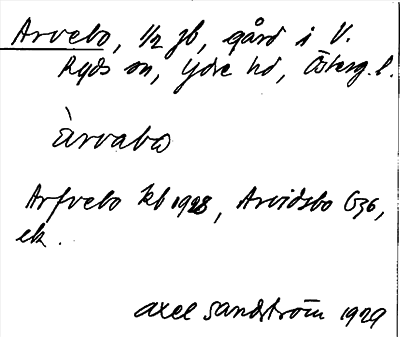 Arvebo, 1/2 jb, gård i V.
Ryds sn, Ydre hd, Österg. l.
Àrvabω
Arfvebo kb 1928, Arvidsbo G36,
ek.
Axel Sandström 1929